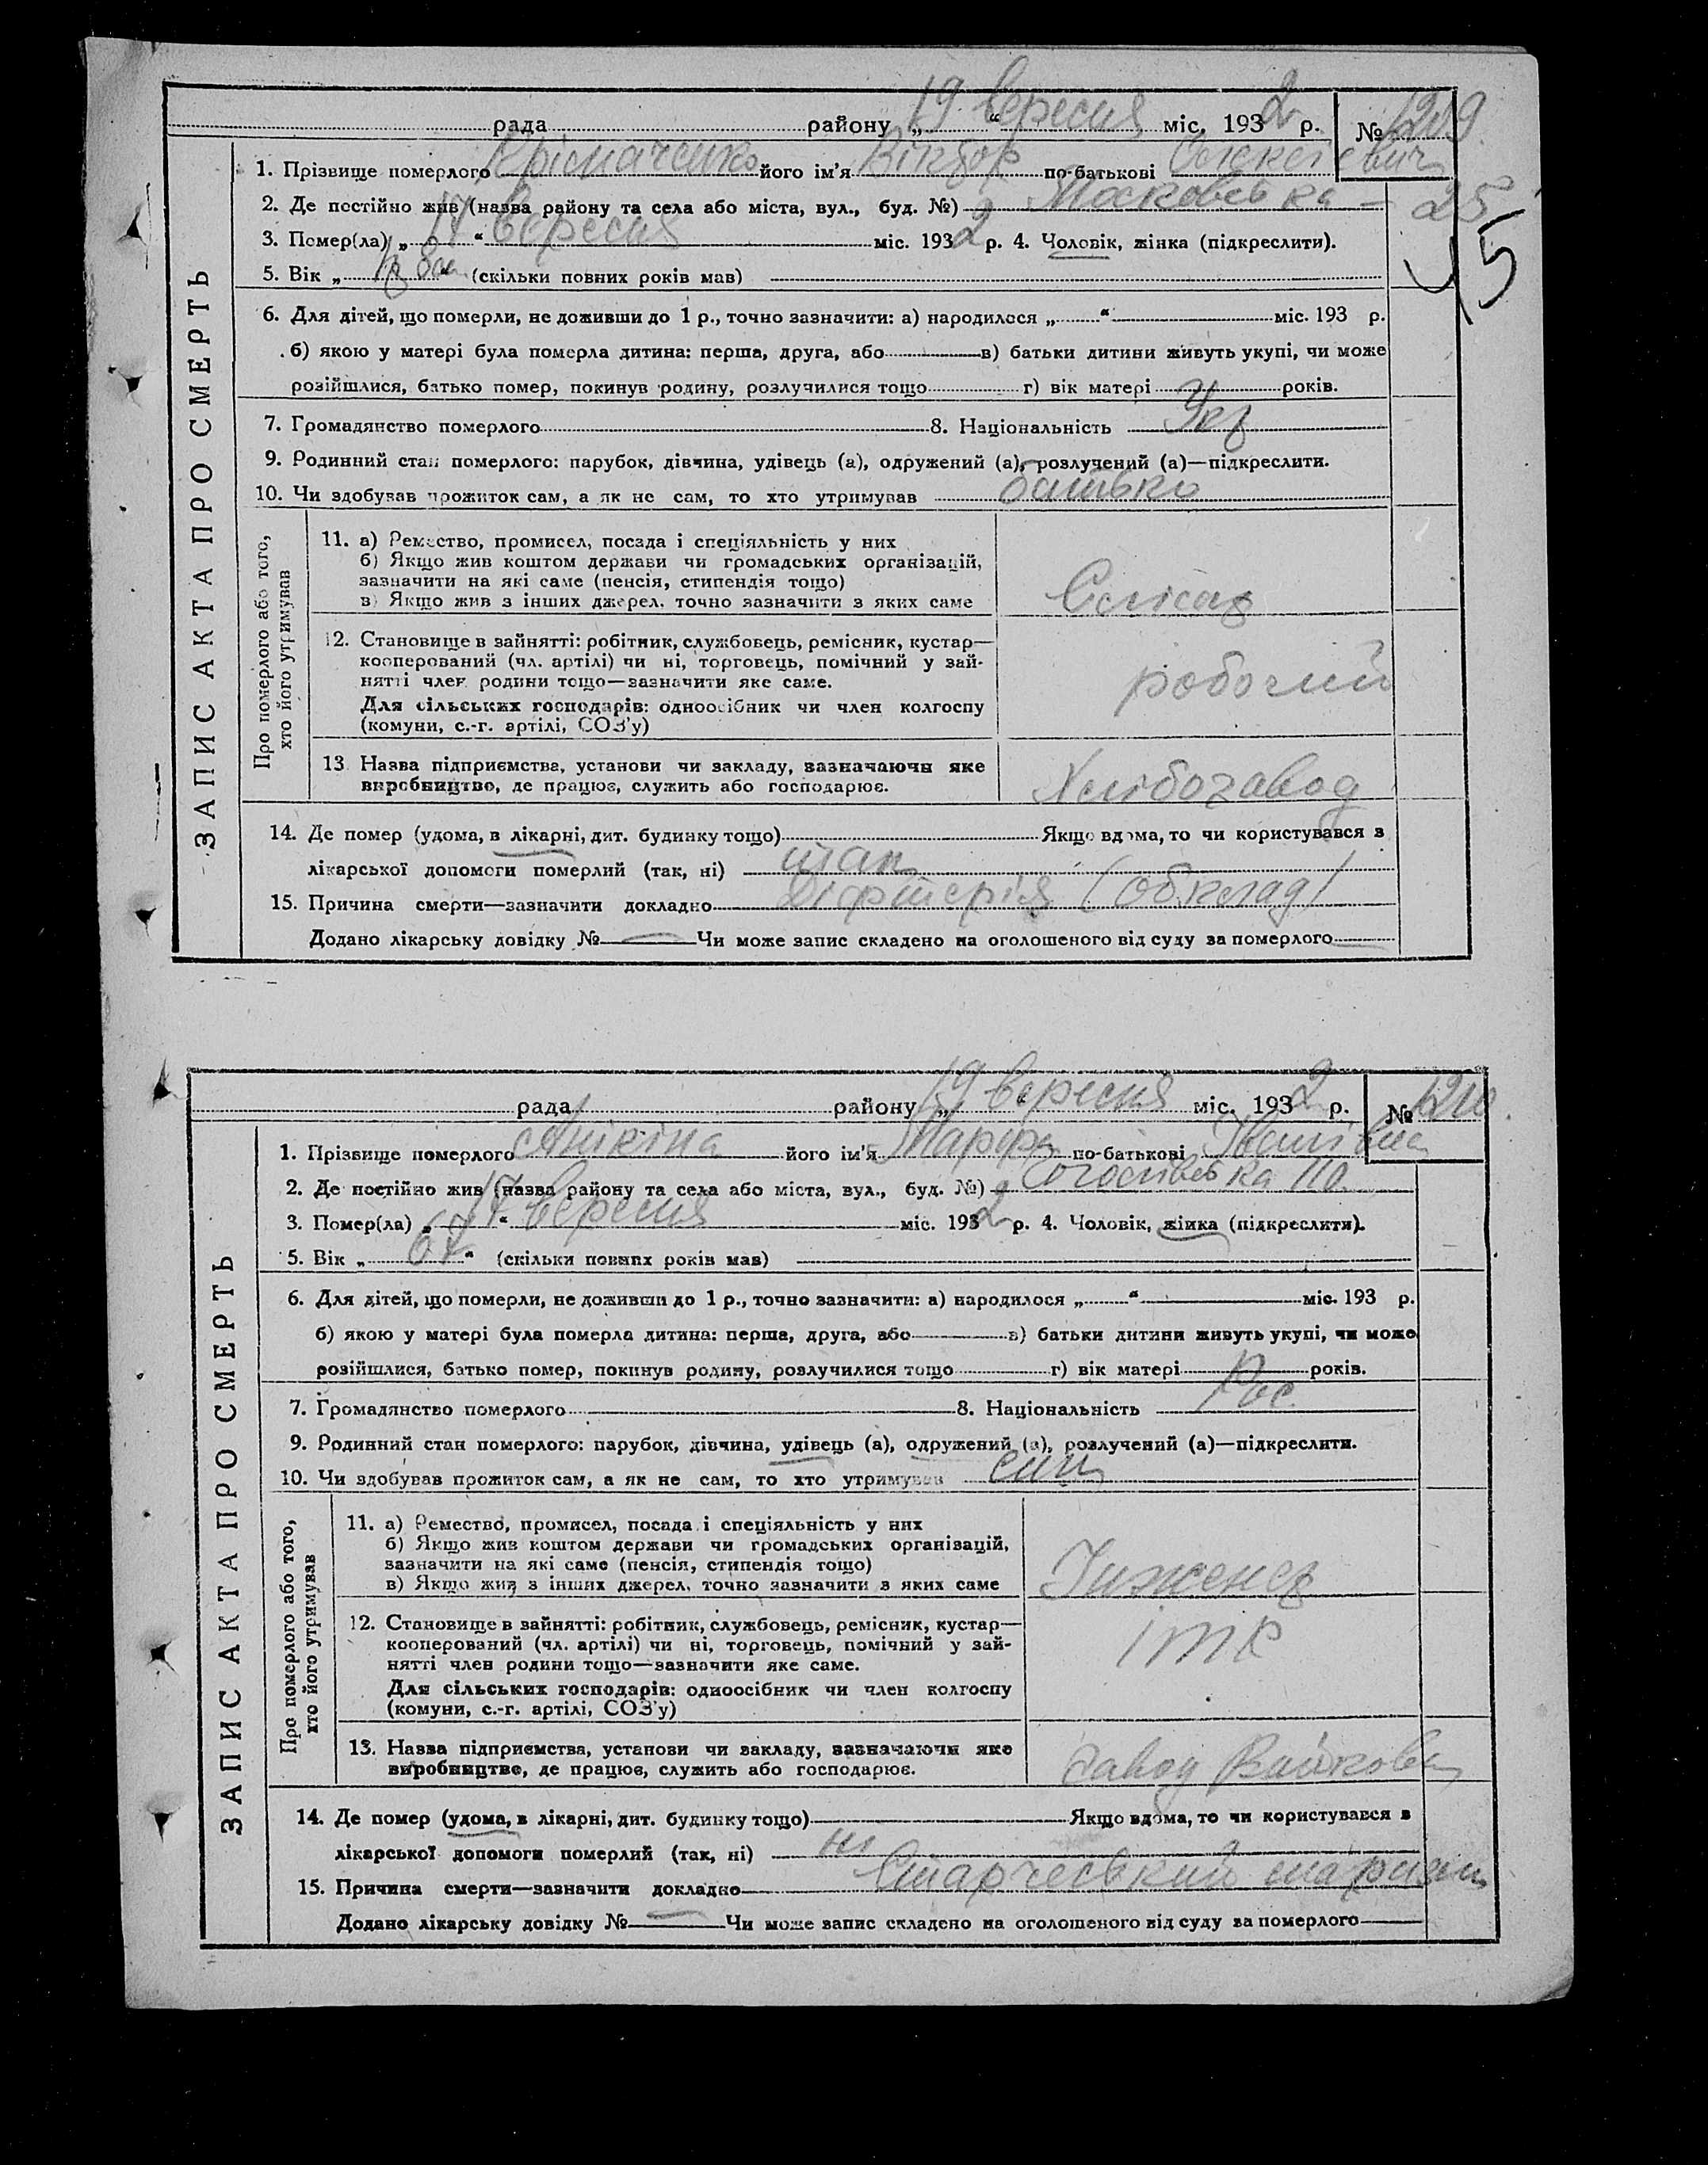 рада району „19“ вересня міс. 1932 р. № 1209
1. Прізвище померлого його ім'я Віктор по-батькові Олексієвич
2. Де постійно жив (назва району та села або міста, вул., буд. №) Московська – 25
3. Помер(ла) „17“ вересня міс. 1932 р. 4. Чоловік, жінка (підкреслити).
5. Вік „ “ (скільки повних років мав)
15
6. Для дітей, що померли, не доживши до 1 р., точно зазначити: а) народилося „ “ міс. 193 р.
б) якою у матері була померла дитина: перша, друга, або в) батьки дитини живуть укупі, чи може
розійшлися, батько помер, покинув родину, розлучилися тощо г) вік матері років.
7. Громадянство померлого 8. Національність Укр
9. Родинний стан померлого: парубок, дівчина, удівець (а), одружений (а), розлучений (а)—підкреслити.
10. Чи здобував прожиток сам, а як не сам, то хто утримував батько
ЗАПИС АКТА ПРО СМЕРТЬ
Про померлого або того,
хто його утримував
11. а) Ремество, промисел, посада і спеціяльність у них
б) Якщо жив коштом держави чи громадських організацій,
зазначити на які саме (пенсія, стипендія тощо)
в) Якщо жив з інших джерел, точно зазначити з яких саме
Слісар
12. Становище в зайнятті: робітник, службовець, ремісник, кустар—
кооперований (чл. артілі) чи ні, торговець, помічний у зай-
нятті член родини тощо—зазначити яке саме.
Для сільських господарів: одноосібник чи член колгоспу
(комуни, с.-г. артілі, СОЗ'у)
робочий
13. Назва підприємства, установи чи закладу, зазначаючи яке
виробництво, де працює, служить або господарює.
Хлібозавод
14. Де помер (удома, в лікарні, дит. будинку тощо) Якщо вдома, то чи користувався з
лікарської допомоги померлий (так, ні) так
15. Причина смерти—зазначити докладно Діфтерія (обклад)
Додано лікарську довідку № Чи може запис складено на оголошеного від суду за померлого
рада району „19“ вересня міс. 1932 р. № 1210.
1. Прізвище померлого Анікіна його ім'я Марфа по-батькові
2. Де постійно жив (назва району та села або міста, вул., буд. №) 110
3. Помер(ла) „17“ вересня міс. 1932 р. 4. Чоловік, жінка (підкреслити).
5. Вік „67“ (скільки повних років мав)
6. Для дітей, що померли, не доживши до 1 р., точно зазначити: а) народилося „ “ міс. 193 р.
б) якою у матері була померла дитина: перша, друга, або в) батьки дитини живуть укупі, чи може
розійшлися, батько помер, покинув родину, розлучилися тощо г) вік матері років.
7. Громадянство померлого 8. Національність Рос.
9. Родинний стан померлого: парубок, дівчина, удівець (а), одружений (а), розлучений (а)—підкреслити.
10. Чи здобував прожиток сам, а як не сам, то хто утримував син
ЗАПИС АКТА ПРО СМЕРТЬ
Про померлого або того,
хто його утримував
11. а) Ремество, промисел, посада і спеціяльність у них
б) Якщо жив коштом держави чи громадських організацій,
зазначити на які саме (пенсія, стипендія тощо)
в) Якщо жив з інших джерел, точно зазначити з яких саме
Інженер
12. Становище в зайнятті: робітник, службовець, ремісник, кустар—
кооперований (чл. артілі) чи ні, торговець, помічний у зай-
нятті член родини тощо—зазначити яке саме.
Для сільських господарів: одноосібник чи член колгоспу
(комуни, с.-г. артілі, СОЗ'у)
ітр
13. Назва підприємства, установи чи закладу, зазначаючи яке
виробництво, де працює, служить або господарює.
завод
14. Де помер (удома, в лікарні, дит. будинку тощо) Якщо вдома, то чи користувався з
лікарської допомоги померлий (так, ні) ні
15. Причина смерти—зазначити докладно
Додано лікарську довідку № Чи може запис складено на оголошеного від суду за померлого